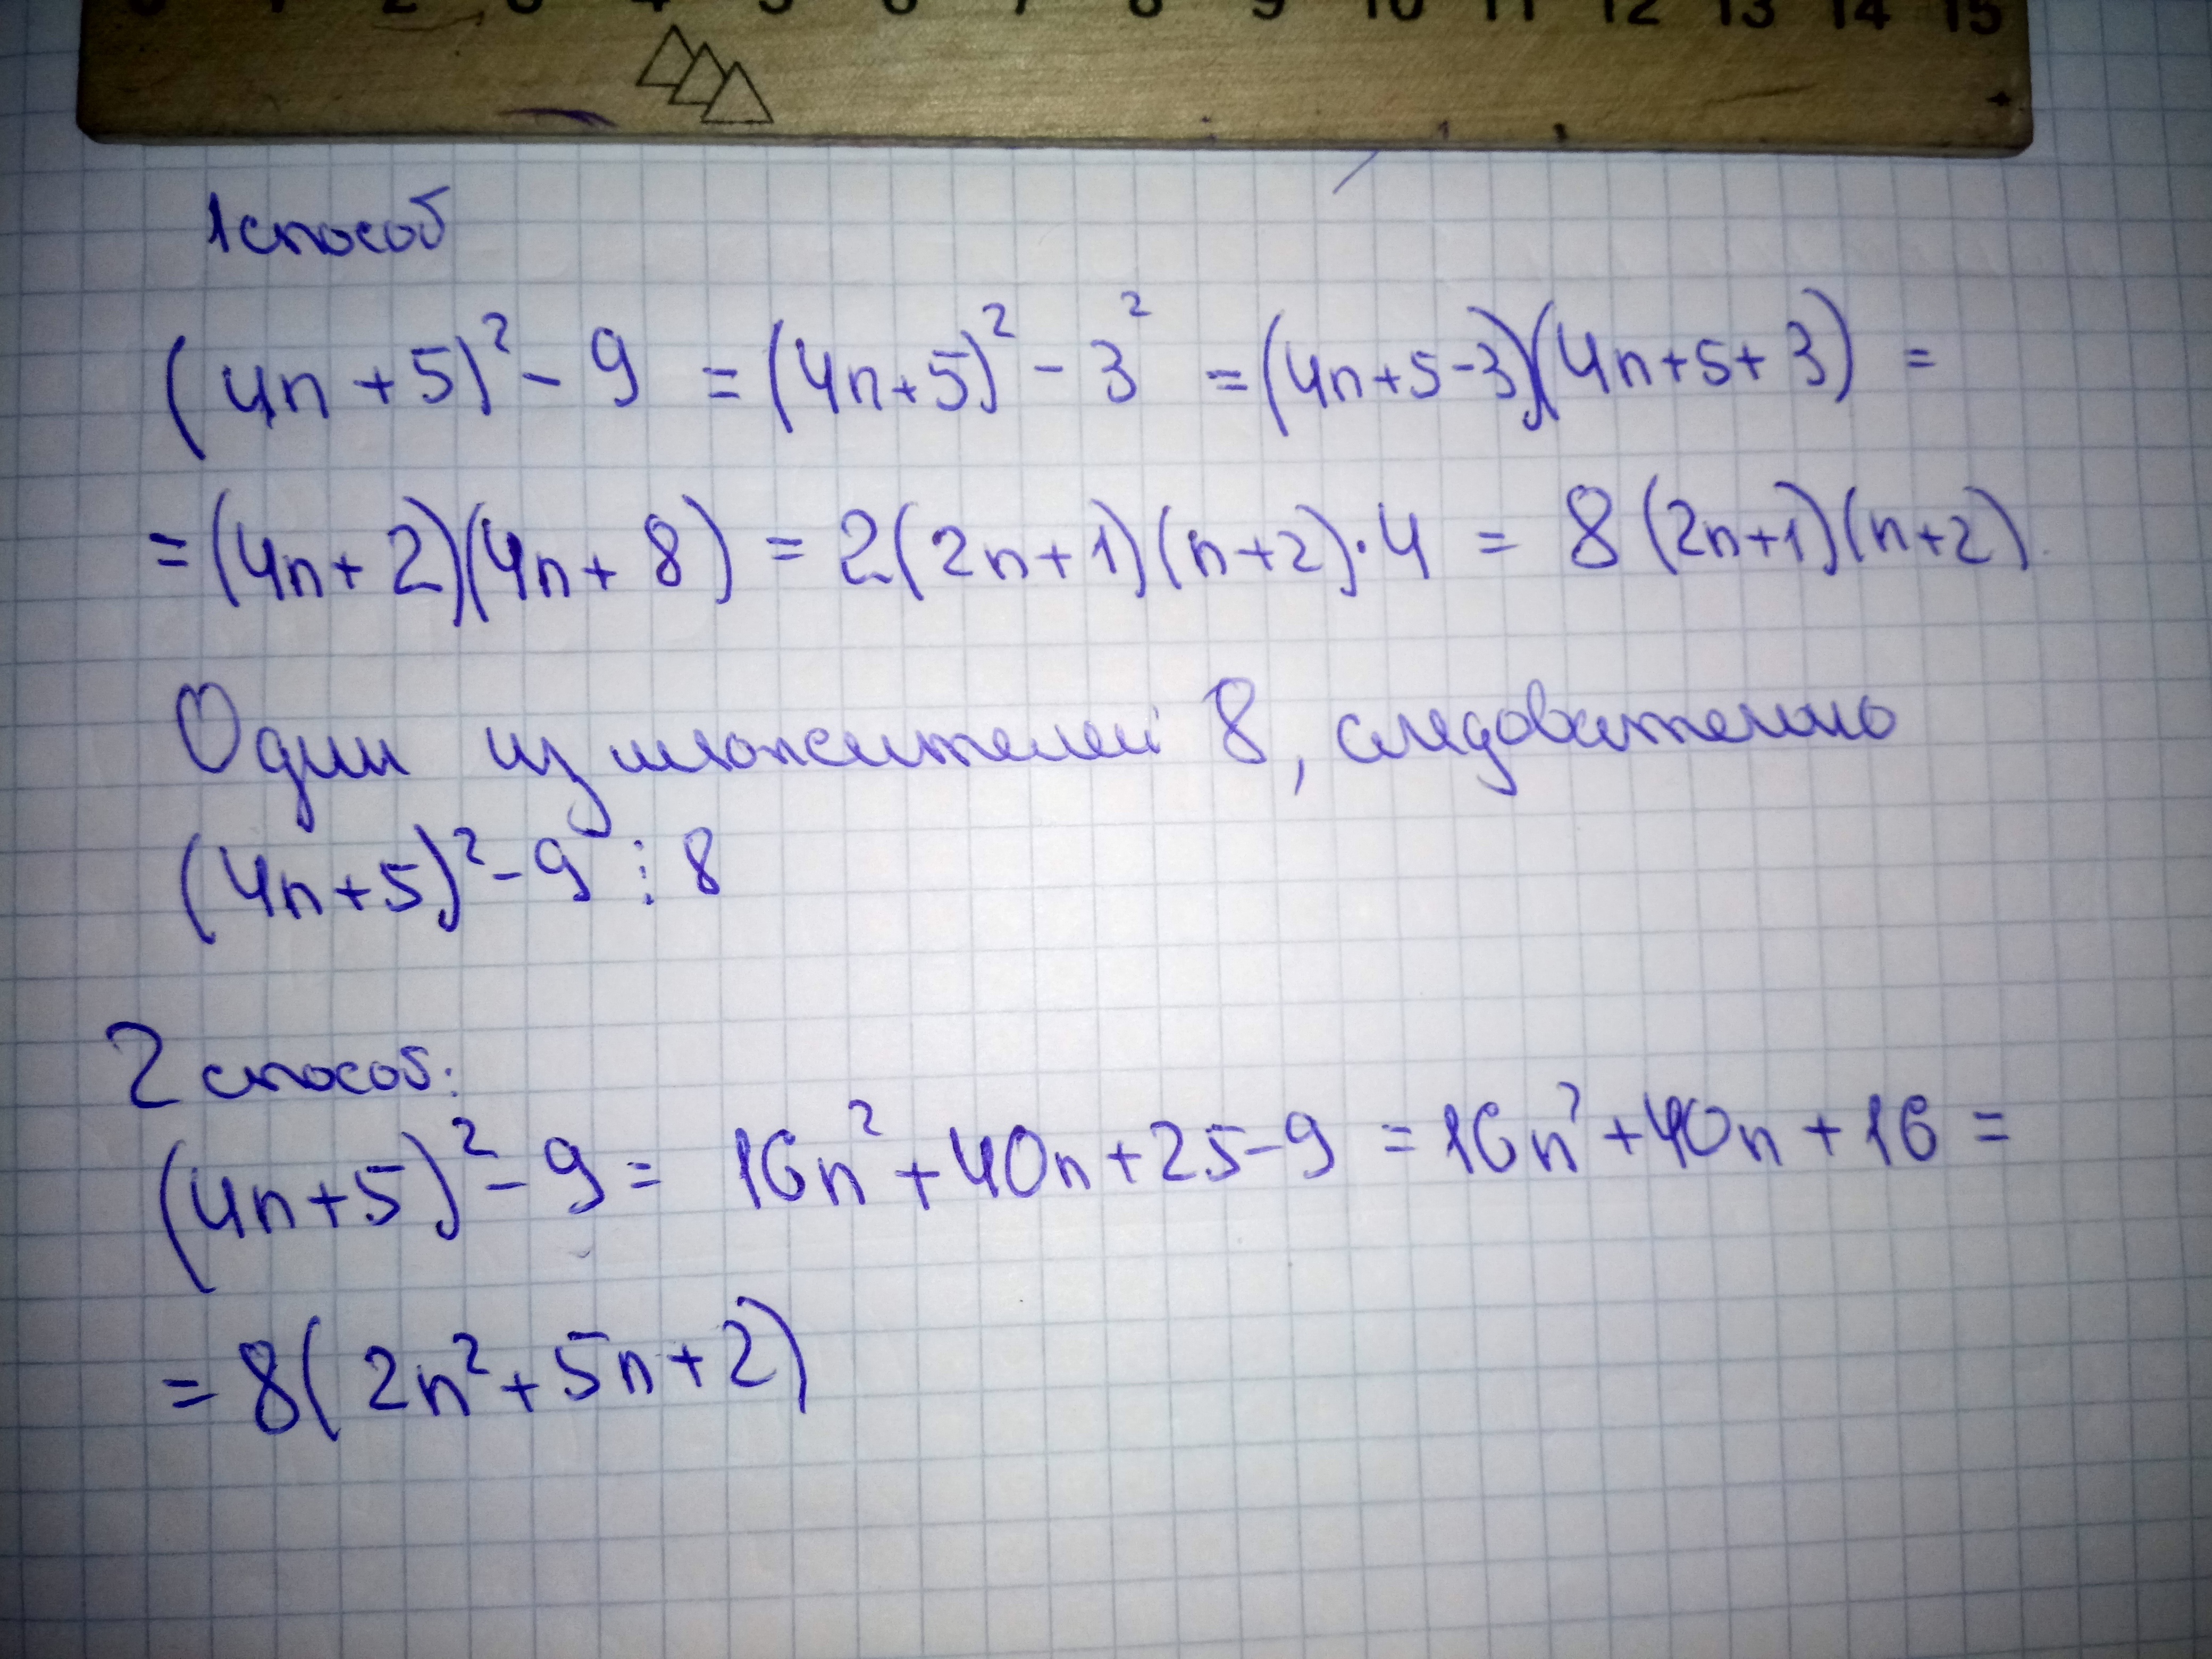 0 1 2 3 4 5 6 7 8 9 10 11 12 13 14 15
1 способ
(4n+5)² - 9 = (4n+5)² - 3² = (4n+5-3)(4n+5+3) =
= (4n+2)(4n+8) = 2(2n+1)(n+2)·4 = 8(2n+1)(n+2).
Один из множителей 8, следовательно
(4n+5)² - 9 ⋮ 8
2 способ:
(4n+5)² - 9 = 16n² + 40n + 25 - 9 = 16n² + 40n + 16 =
= 8(2n² + 5n + 2)